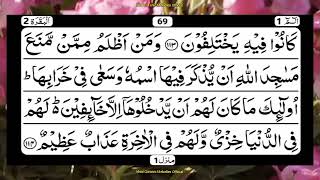 البقرة 2
69
الٓمّٓ 1
كَانُوْا فِيْهِ يَخْتَلِفُوْنَ ﴿۱۱۳﴾ وَمَنْ اَظْلَمُ مِمَّنْ مَّنَعَ
مَسٰجِدَ اللّٰهِ اَنْ يُّذْكَرَ فِيْهَا اسْمُهٗ وَسَعٰى فِيْ خَرَابِهَا ؕ
اُولٰٓئِكَ مَا كَانَ لَهُمْ اَنْ يَّدْخُلُوْهَاۤ اِلَّا خَآئِفِيْنَ ؕ لَهُمْ
فِي الدُّنْيَا خِزْيٌ وَّلَهُمْ فِي الْاٰخِرَةِ عَذَابٌ عَظِيْمٌ ﴿۱۱۴﴾
منزل 1